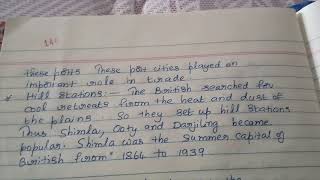 these ports These port cities played an
important role in trade
* Hill Stations:- The British searched for
cool retreats from the heat and dust of
the plains. So they set up hill stations
Thus Shimla, Ooty and Darjiling became
popular. Shimla was the Summer Capital of
British from 1864 to 1939